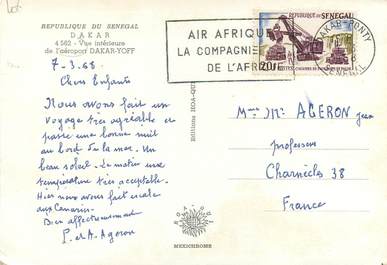 REPUBLIQUE DU SENEGAL
DAKAR
4 562 - Vue intérieure
de l'aéroport DAKAR-YOFF
7-3.68
Chers Enfants
Nous avons fait un
voyage très agréable et
passé une bonne nuit
au bord de la mer. Un
beau soleil. Le matin une
température très acceptable.
Hier nous avons fait escale
aux Canaries.
Bien affectueusement
P. et A. Ageron
Editions
MEXICHROME
AIR AFRIQUE
LA COMPAGNIE
DE L'AFR
RÉPUBLIQUE DU SÉNÉGAL
20F
DAKAR-PONTY
SENEGAL
AGERON Jean
professeur
Charnècles 38
France